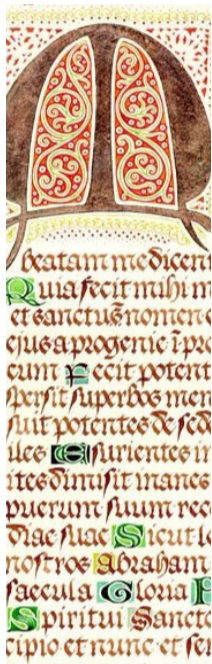 M
beatam me dicent
Quia fecit mihi m
et sanctum̄ nomen e
ejus a progenie ī pro
eum Fecit potent
spersit superbos men
suit potentes de sed
iles Esurientes im
ites dimisit inanes
puerum suum rec
diae suae Sicut lo
nostros Abraham
saecula Gloria P
Spiritui Sancto
cipio et nunc et sem